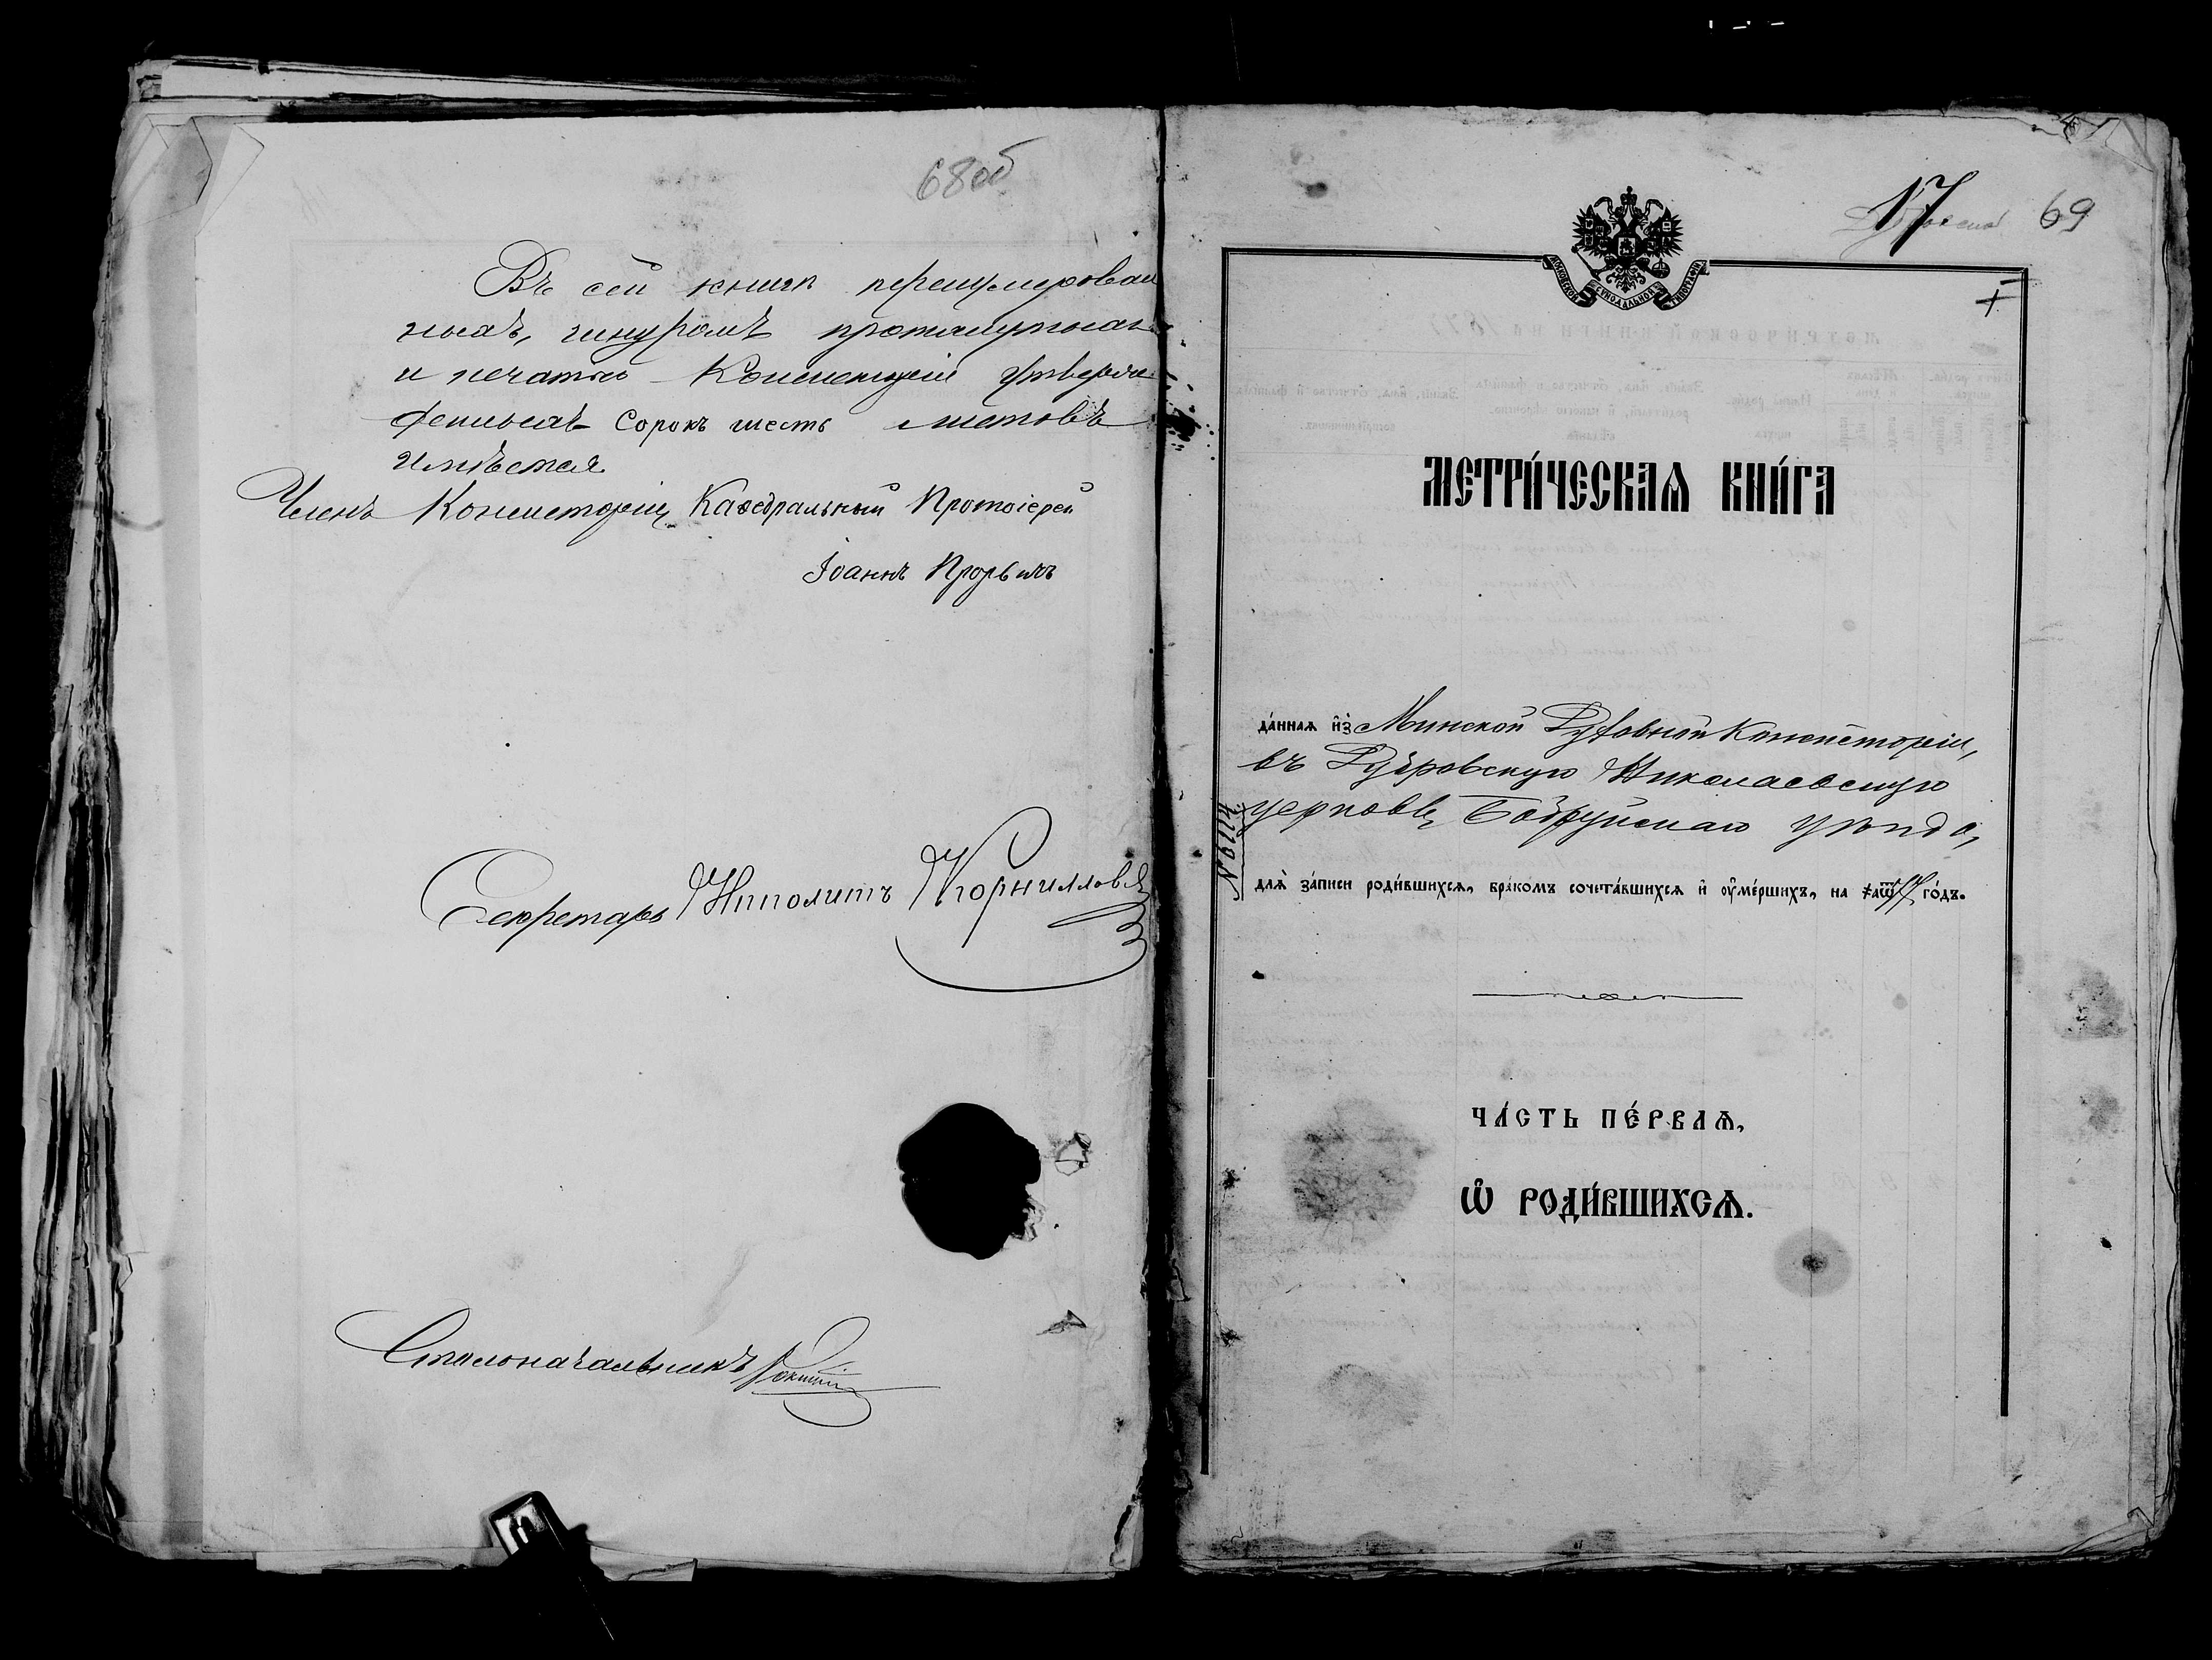 68об
Въ сей книгѣ перенумерован
ныхъ, шнуромъ протянутыхъ
и печатью Консисторіи утверж
денныхъ сорокъ шесть листовъ
имѣется.
Членъ Консисторіи, Каѳедральный Протоіерей
Іоаннъ
Секретарь Ипполитъ Корниловъ
Столоначальникъ
17
69
МОСКОВСКОЙ СѴНОДАЛЬНОЙ ТИПОГРАФІИ
МЕТРИ́ЧЕСКАѦ КНИ́ГА
да́ннаѧ и҆з̾ Минской Духовной Консисторіи,
въ Дубровскую Николаевскую
церковь, Бобруйскаго уѣзда,
длѧ̀ за́писи роди́вшихсѧ, бра́комъ сочета́вшихсѧ и҆ ᲂу҆ме́ршихъ, на го́дъ.
ЧА́СТЬ ПЕ́РВАѦ,
Ѡ҆ РОДИ́ВШИХСѦ.